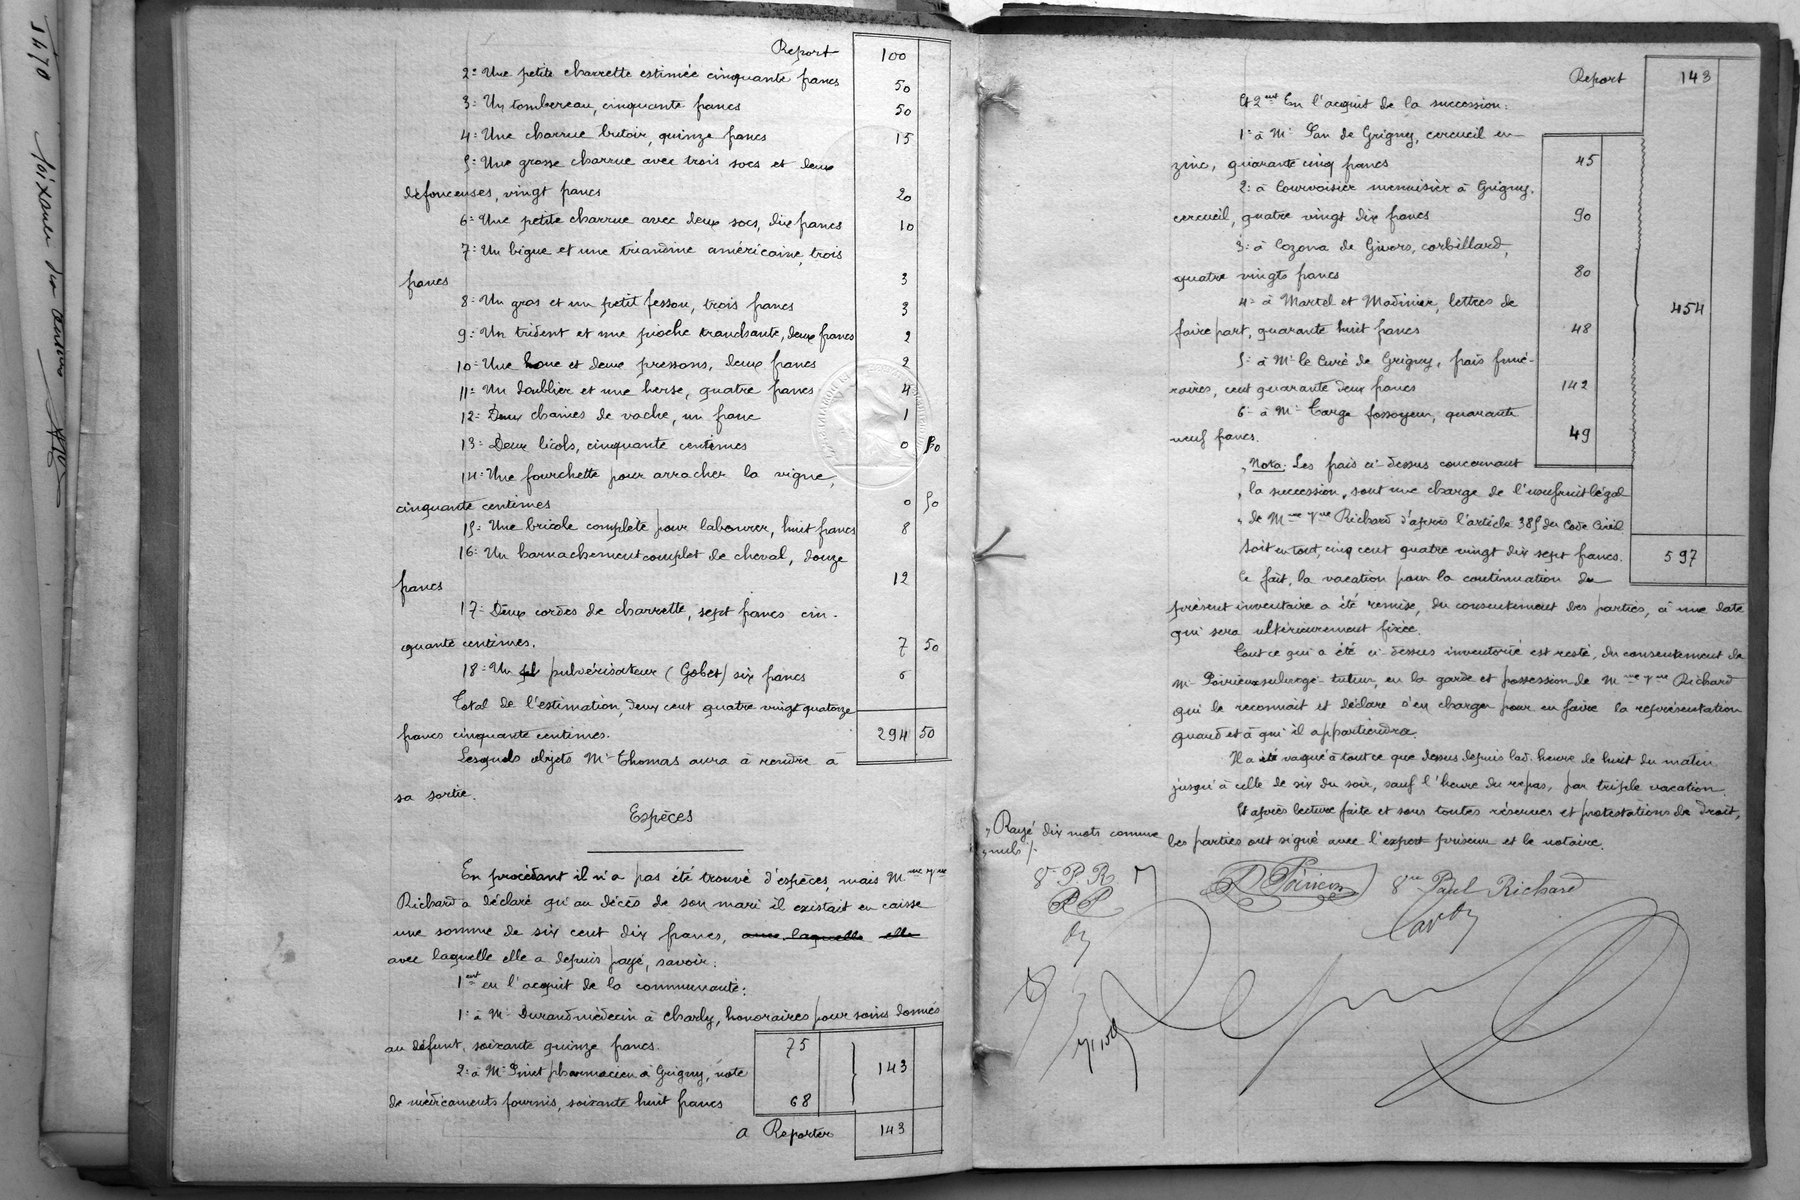 Report 100
2º Une petite charrette estimée cinquante francs 50
3º Un tombereau, cinquante francs 50
4º Une charrue butoir, quinze francs 15
5º Une grosse charrue avec trois socs et deux
défonceuses, vingt francs 20
6º Une petite charrue avec deux socs, dix francs 10
7º Un bigue et une triandine américaine, trois
francs 3
8º Un gros et un petit fessou, trois francs 3
9º Un trident et une pioche tranchante, deux francs 2
10º Une houe et deux pressons, deux francs 2
11º Un doublier et une herse, quatre francs 4
12º Deux chaines de vache, un franc 1
13º Deux licols, cinquante centimes 0 50
14º Une fourchette pour arracher la vigne,
cinquante centimes 0 50
15º Une bricole complète pour labourer, huit francs 8
16º Un harnachement complet de cheval, douze
francs 12
17º Deux cordes de charrette, sept francs cin-
quante centimes. 7 50
18º Un pulvérisateur (Gobet) six francs 6
Total de l'estimation, deux cent quatre vingt quatorze
francs cinquante centimes. 294 50
Lesquels objets Mr Thomas aura à rendre à
sa sortie.
Espèces
En procédant il n'a pas été trouvé d'espèces, mais Mme Vve
Richard a déclaré qu'au décès de son mari il existait en caisse
une somme de six cent dix francs, avec laquelle elle
avec laquelle elle a depuis payé, savoir:
1ent en l'acquit de la communauté:
1º à Mr Durand médecin à Charly, honoraires pour soins donnés
au défunt, soixante quinze francs. 75
2º à Mr Pinet pharmacien à Grigny, note 143
de médicaments fournis, soixante huit francs 68
a Reporter 143
Report 143
Et 2ent En l'acquit de la succession:
1º à Mr Pan de Grigny, cercueil en
zinc, quarante cinq francs 45
2º à Courvoisier menuisier à Grigny,
cercueil, quatre vingt dix francs 90
3º à Cozona de Givors, corbillard,
quatre vingts francs 80
4º à Martel et Madinier, lettres de 454
faire part, quarante huit francs 48
5º à Mr le Curé de Grigny, frais funé-
raires, cent quarante deux francs 142
6º à Mr Targe fossoyeur, quarante
neuf francs. 49
„ Nota: Les frais ci-dessus concernant
„ la succession, sont une charge de l'usufruit légal
„ de Mme Vve Richard d'après l'article 385 du Code Civil
Soit en tout, cinq cent quatre vingt dix sept francs. 597
Ce fait, la vacation pour la continuation du
présent inventaire a été remise, du consentement des parties, à une date
qui sera ultérieurement fixée.
Tout ce qui a été ci-dessus inventorié est resté, du consentement de
Mr Poirieux subrogé-tuteur, en la garde et possession de Mme Vve Richard
qui le reconnait et déclare s'en charger pour en faire la représentation
quand et à qui il appartiendra.
Il a été vaqué à tout ce que dessus depuis lad. heure de huit du matin
jusqu'à celle de six du soir, sauf l'heure du repas, par triple vacation.
Et après lecture faite et sous toutes réserves et protestations de droit,
les parties ont signé avec l'expert priseur et le notaire.
„ Rayé dix mots comme
„ nuls /.
Vve P R
P P
Vve Paul Richard